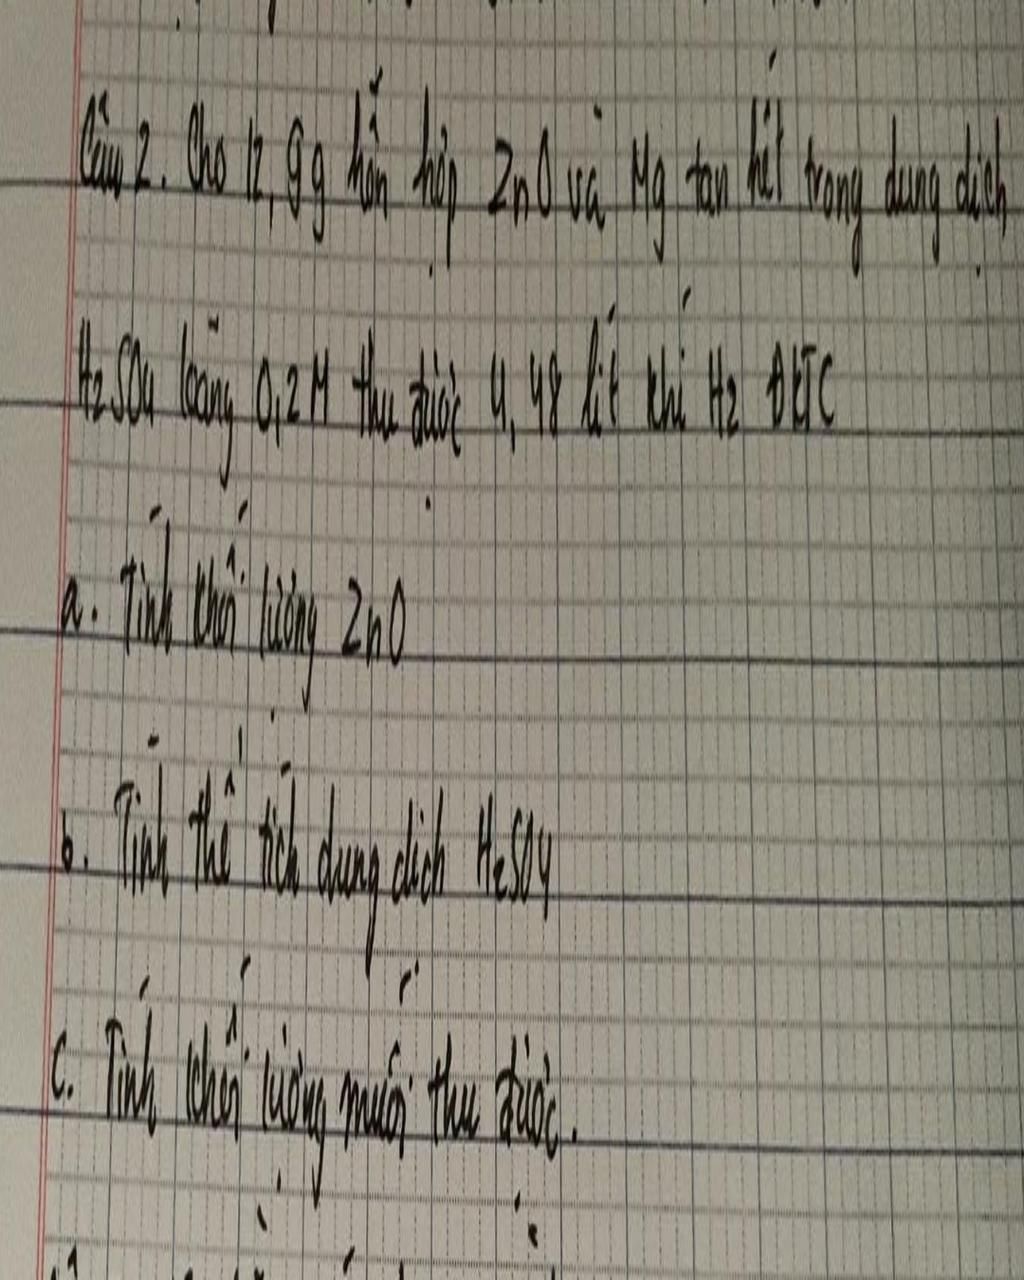 Câu 2. Cho 12,9g hỗn hợp ZnO và Mg tan hết trong dung dịch
H2SO4 loãng 0,2M thu được 4,48 lít khí H2 ĐKTC
a. Tính khối lượng ZnO
b. Tính thể tích dung dịch H2SO4
c. Tính khối lượng muối thu được.